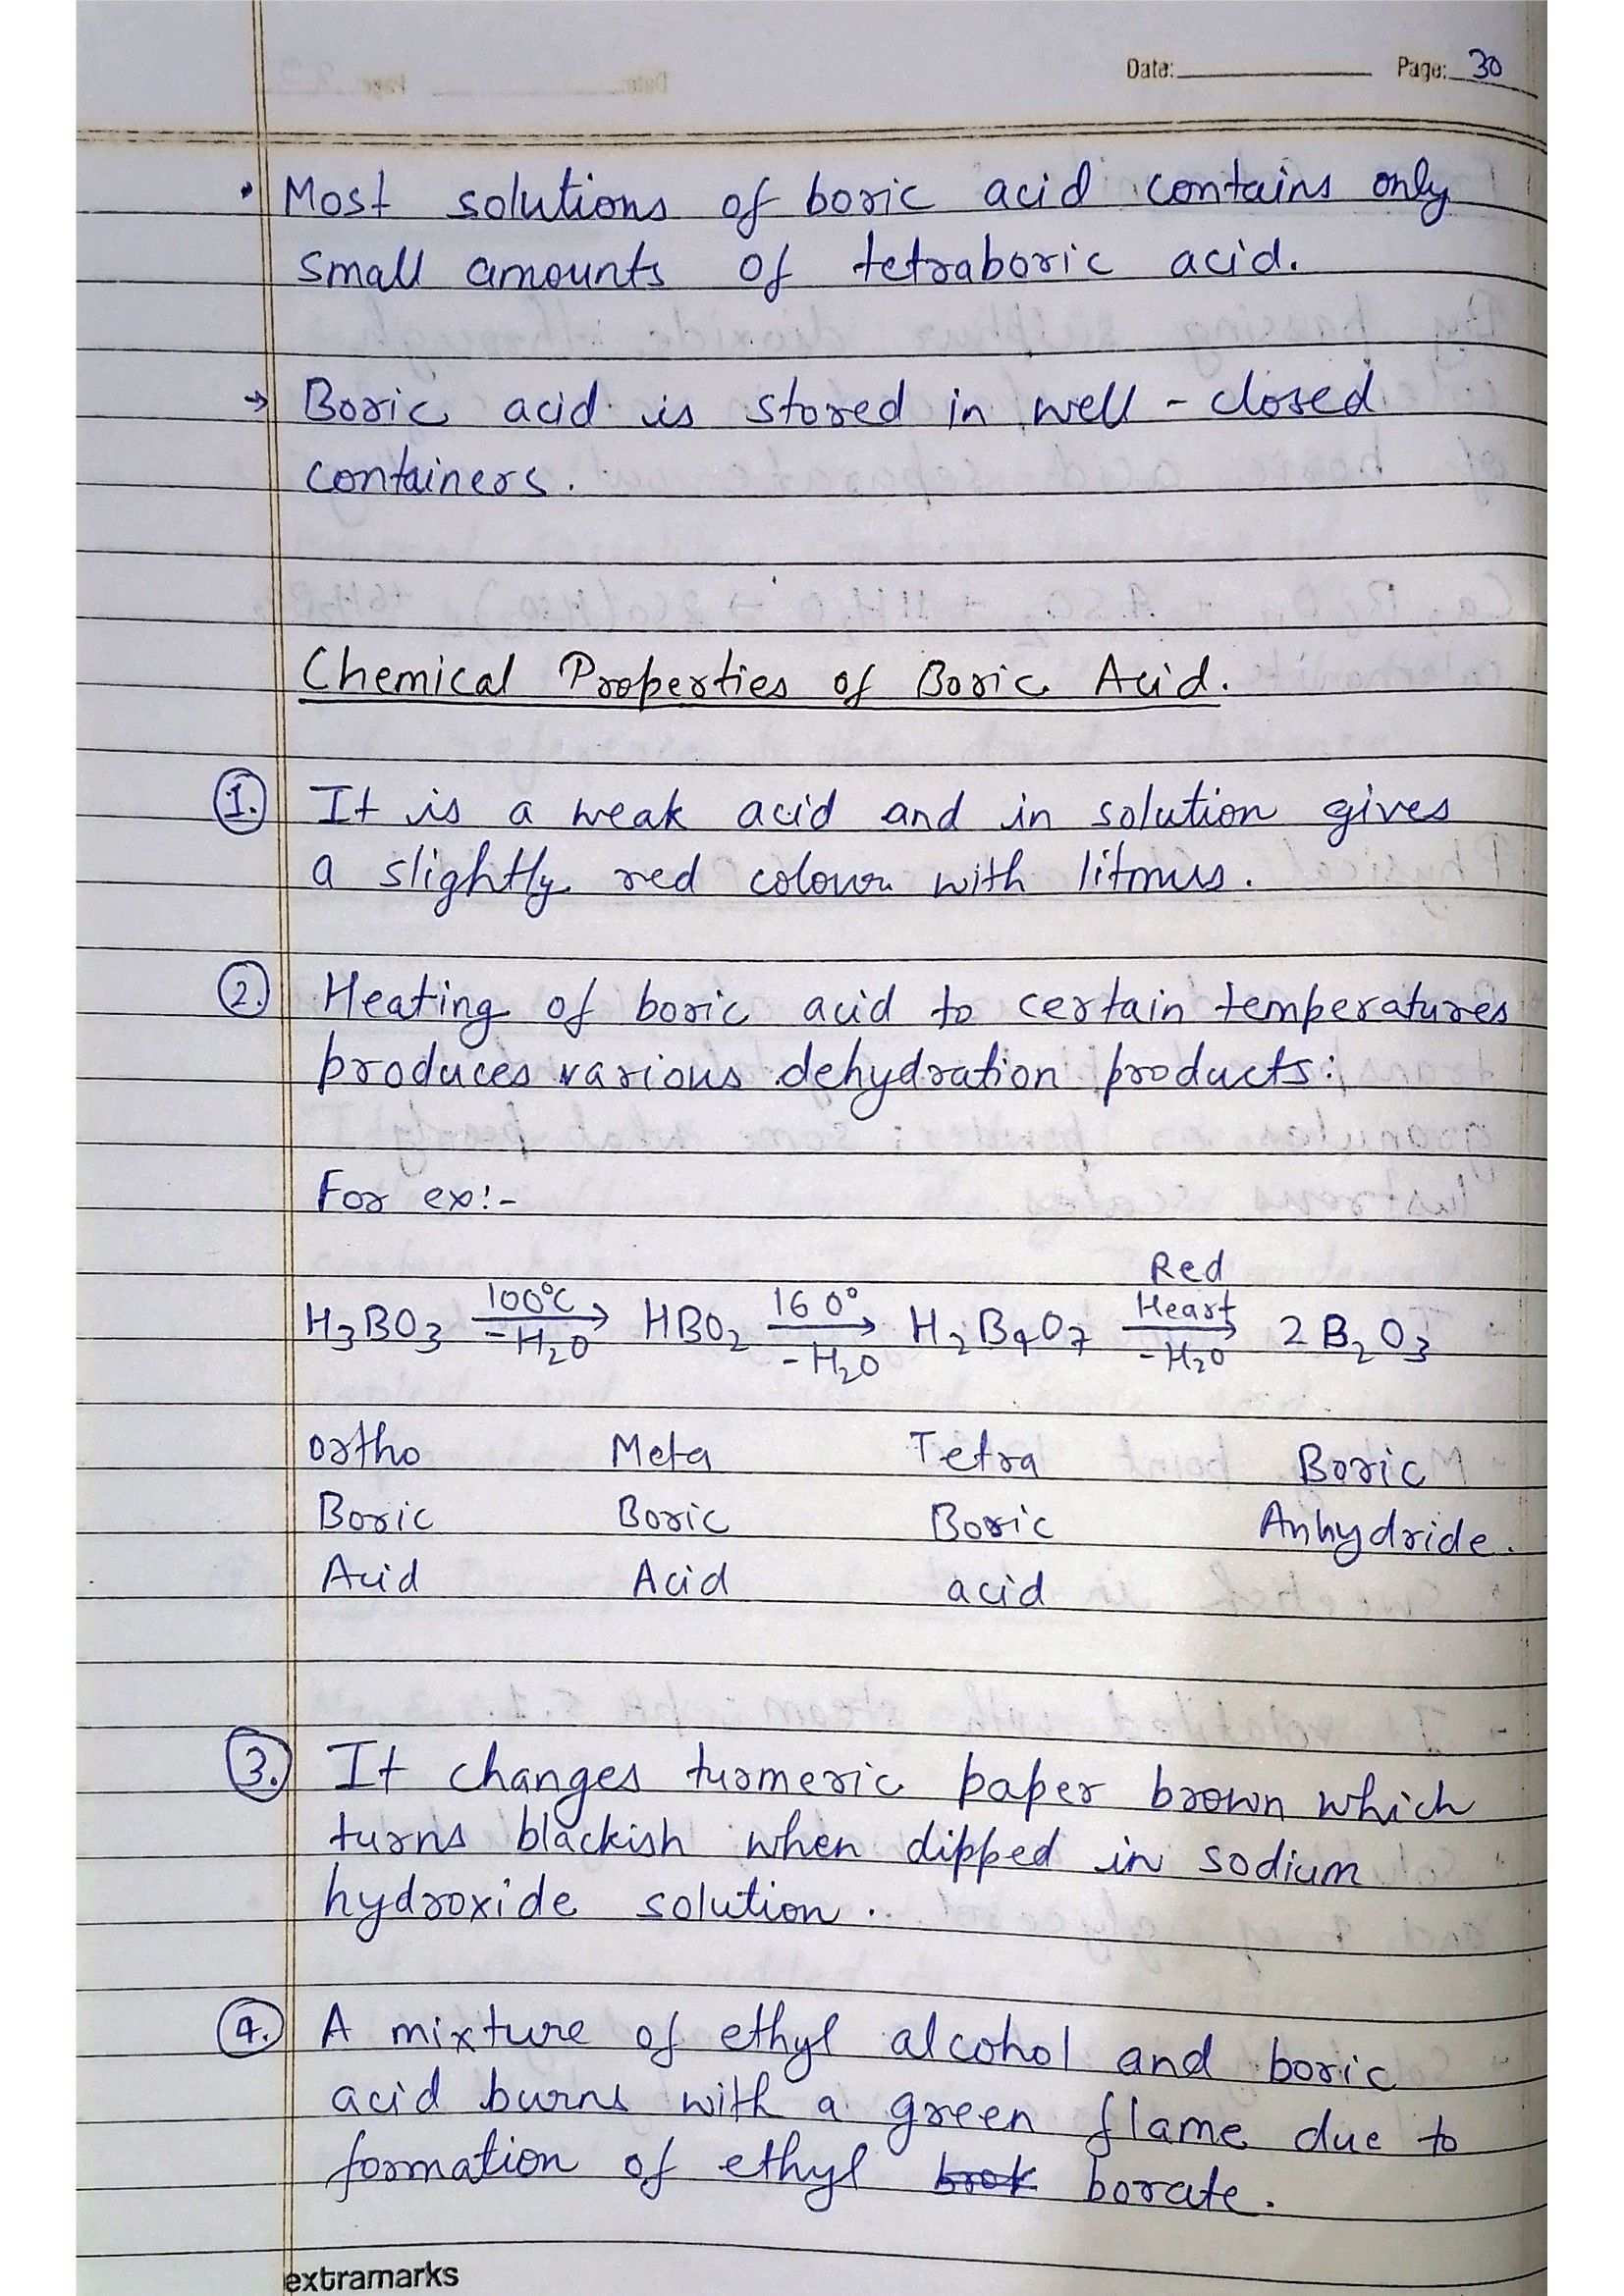 Date: Page: 30
• Most solutions of boric acid contains only
small amounts of tetraboric acid.
→ Boric acid is stored in well - closed
containers.
Chemical Properties of Boric Acid.
1. It is a weak acid and in solution gives
a slightly red colour with litmus.
2. Heating of boric acid to certain temperatures
produces various dehydration products:
For ex:-
H₃BO₃ 100°C → -H₂O HBO₂ 160° → -H₂O H₂B₄O₇ Red Heart → -H₂O 2B₂O₃
Ortho Meta Tetra Boric
Boric Boric Boric Anhydride.
Acid Acid acid
3. It changes turmeric paper brown which
turns blackish when dipped in sodium
hydroxide solution.
4. A mixture of ethyl alcohol and boric
acid burns with a green flame due to
formation of ethyl borate.
extramarks